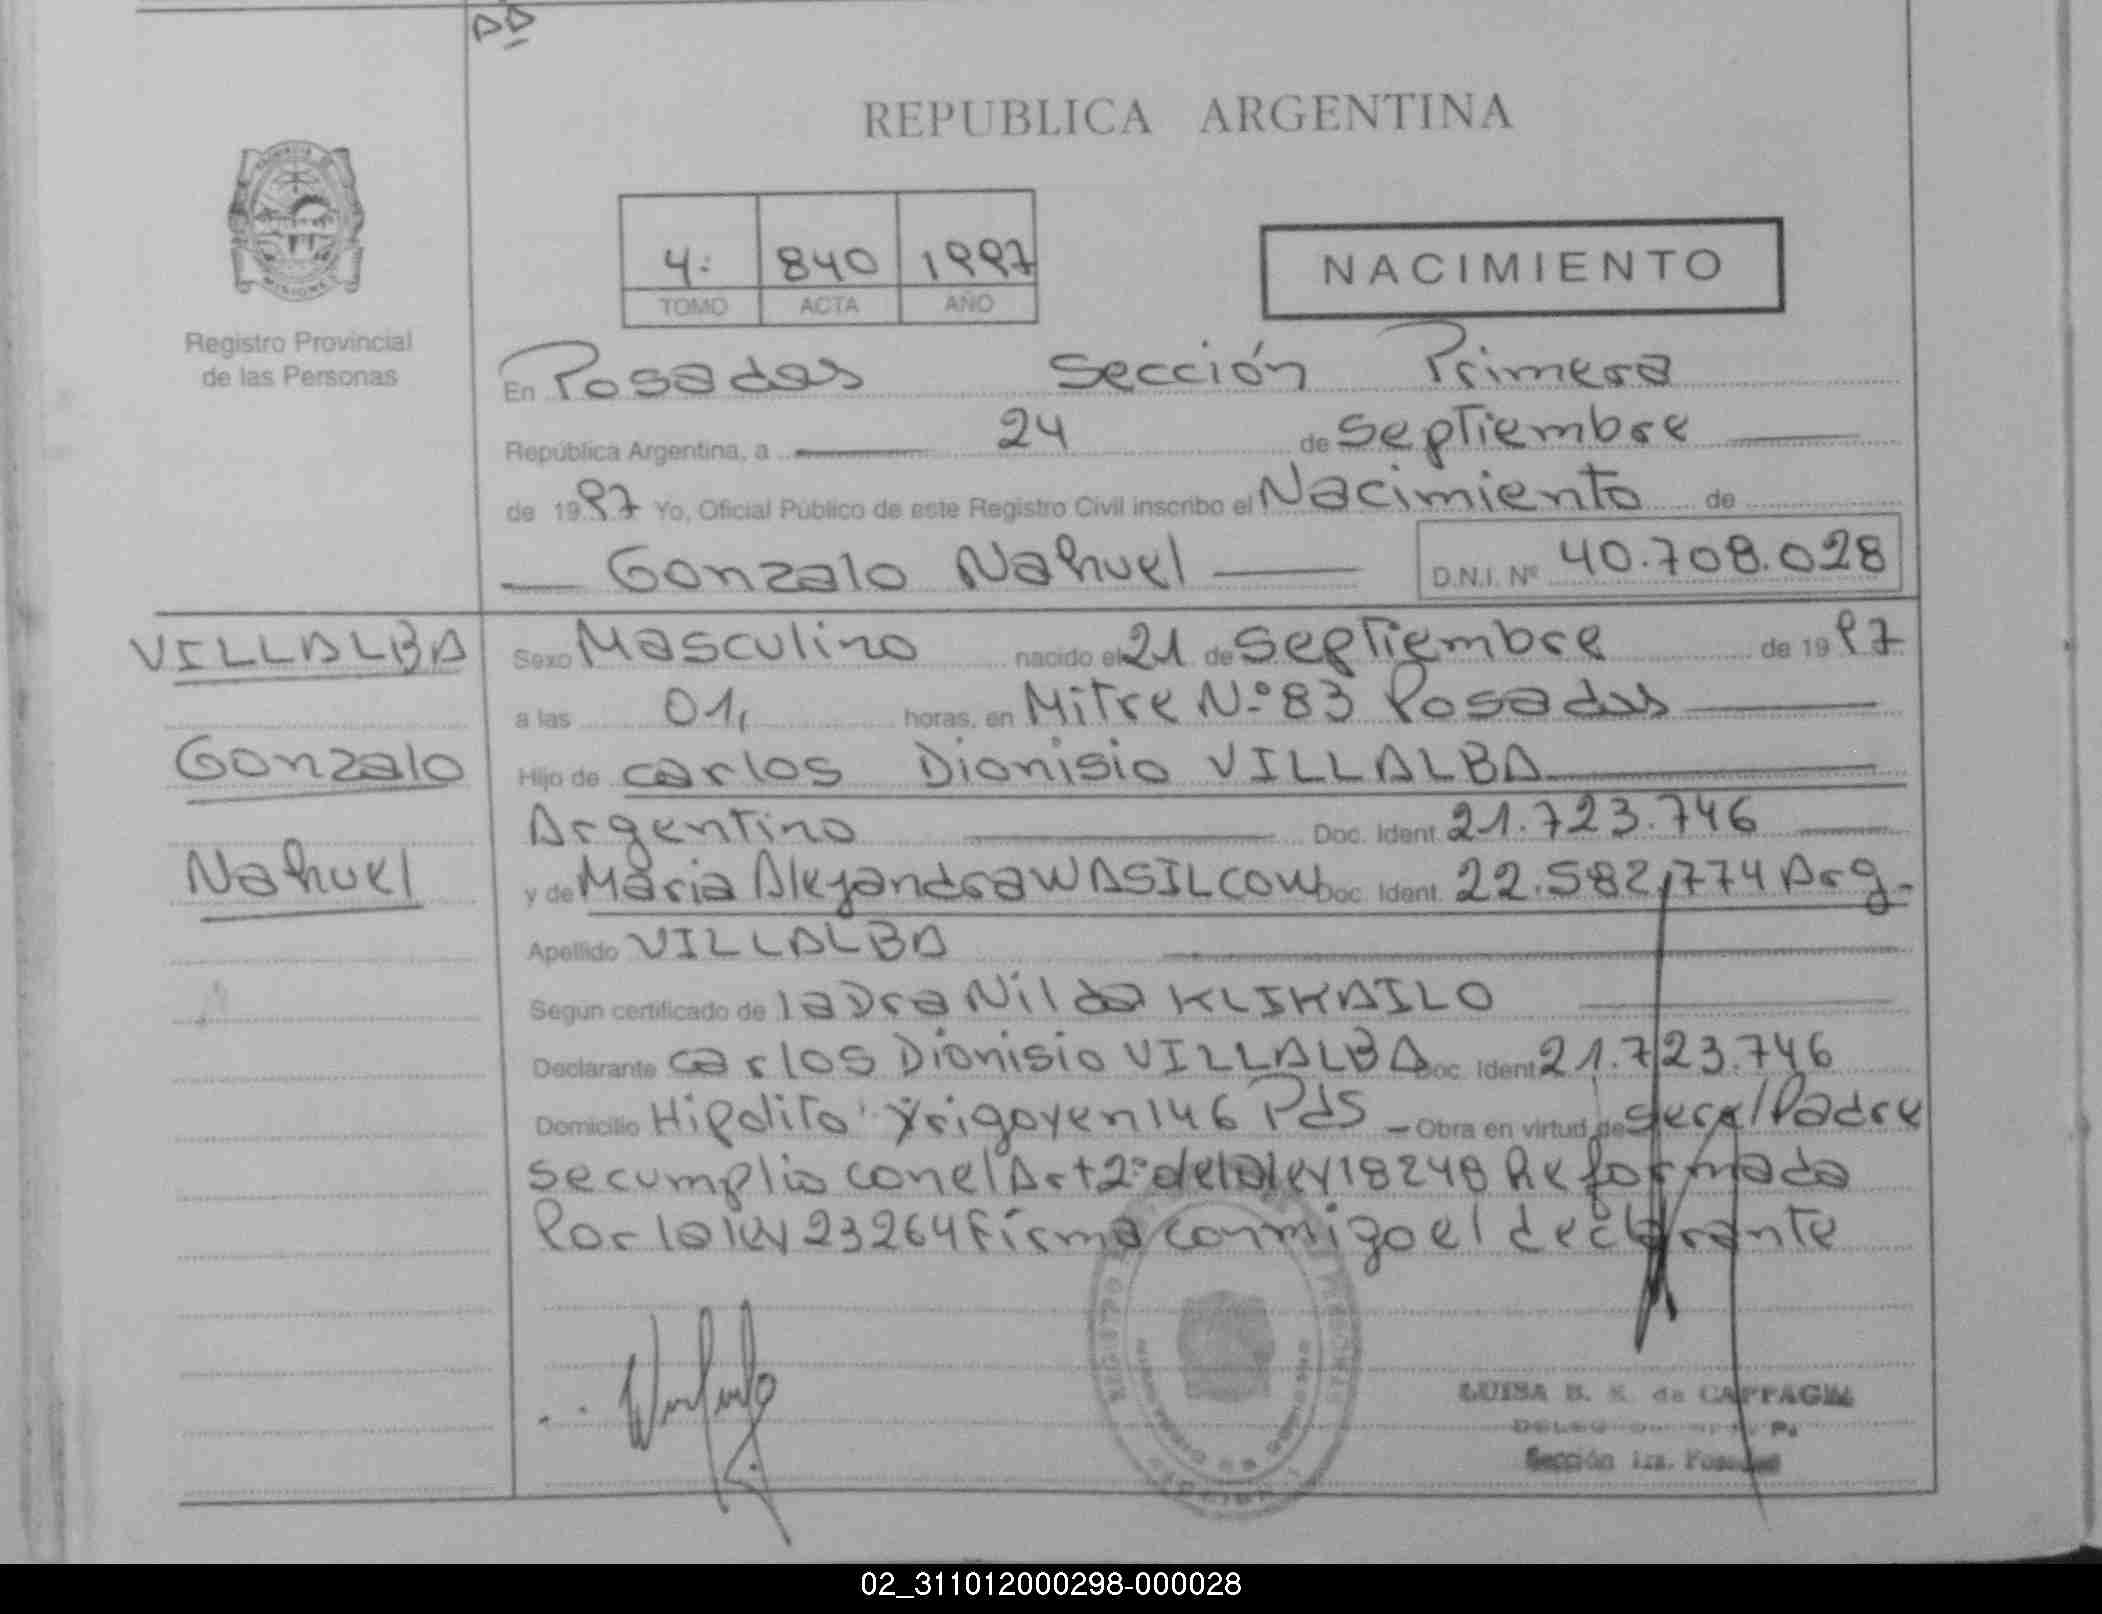 DD
REPUBLICA ARGENTINA
4: 840 1997
TOMO ACTA AÑO
NACIMIENTO
Registro Provincial
de las Personas
En Posadas Sección Primera
República Argentina, a 24 de Septiembre
de 1997 Yo, Oficial Público de este Registro Civil inscribo el Nacimiento de
Gonzalo Nahuel D.N.I. Nº 40.708.028
VILLALBA
Gonzalo
Nahuel
Sexo Masculino nacido el 21 de Septiembre de 1997
a las 01, horas, en Mitre N:º 83 Posadas
Hijo de Carlos Dionisio VILLALBA
Argentino Doc. Ident. 21.723.746
y de Maria Alejandra WASILCOW Doc. Ident. 22.582.774 Arg.
Apellido VILLALBA
Según certificado de la Dra Nilda KLIKAILO
Declarante Carlos Dionisio VILLALBA Doc. Ident 21.723.746
Domicilio Hipolito Yrigoyen 146 Pds - Obra en virtud de ser el Padre
se cumplio con el Art 2º de la ley 18248 Reformada
Por la ley 23264 Firma conmigo el declarante
LUISA B. K. de
Sección 1ra. Posadas
02_311012000298-000028